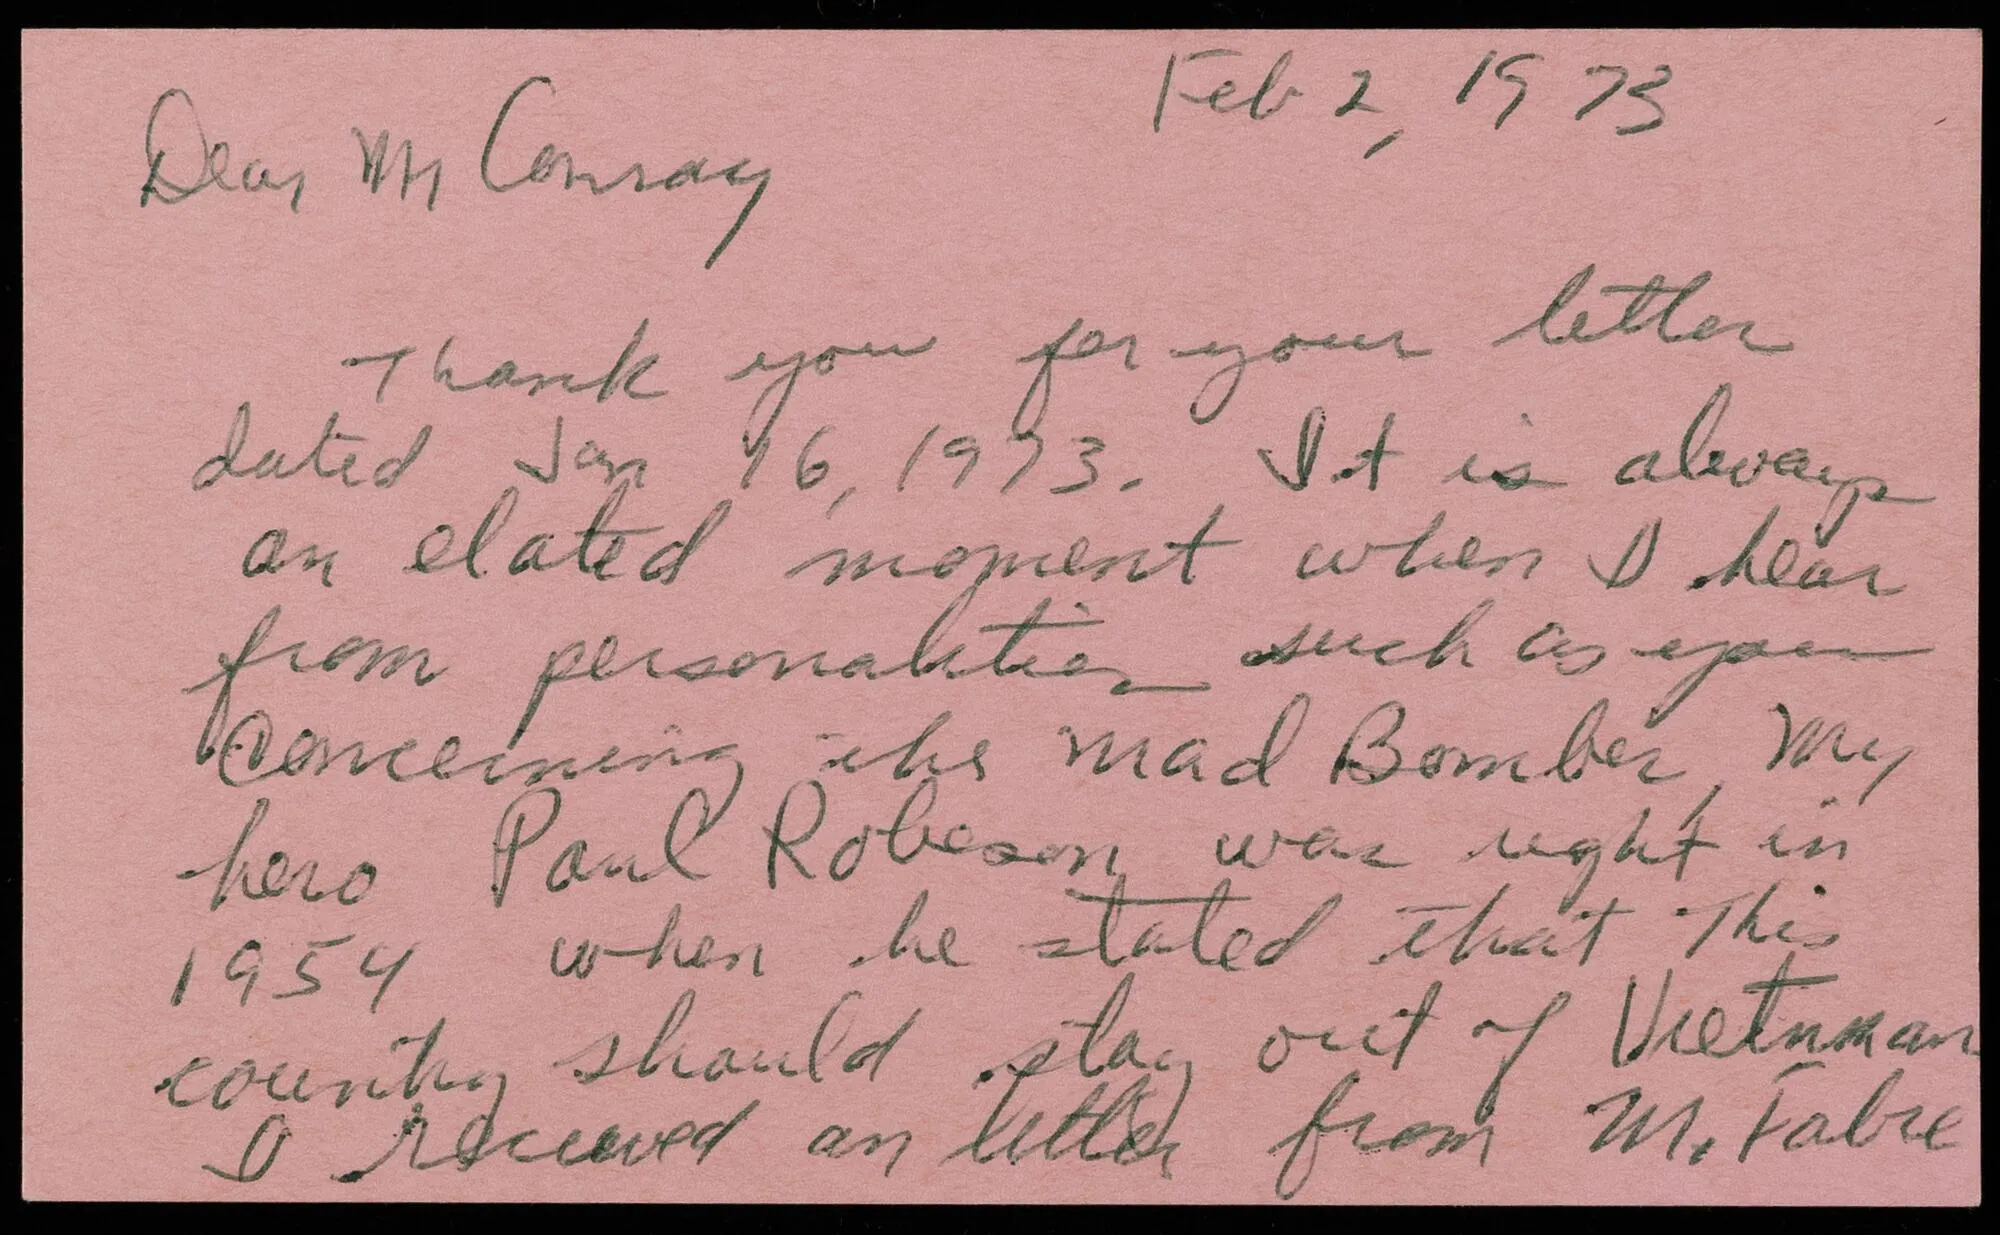 Feb 2, 1973
Dear Mr Conray
Thank you for your letter
dated Jan 16, 1973. It is always
an elated moment when I hear
from personalities such as you
concerning the Mad Bomber, My
hero Paul Robeson was right in
1954 when he stated that this
country should stay out of Vietnman
I received an letter from M. Fabre